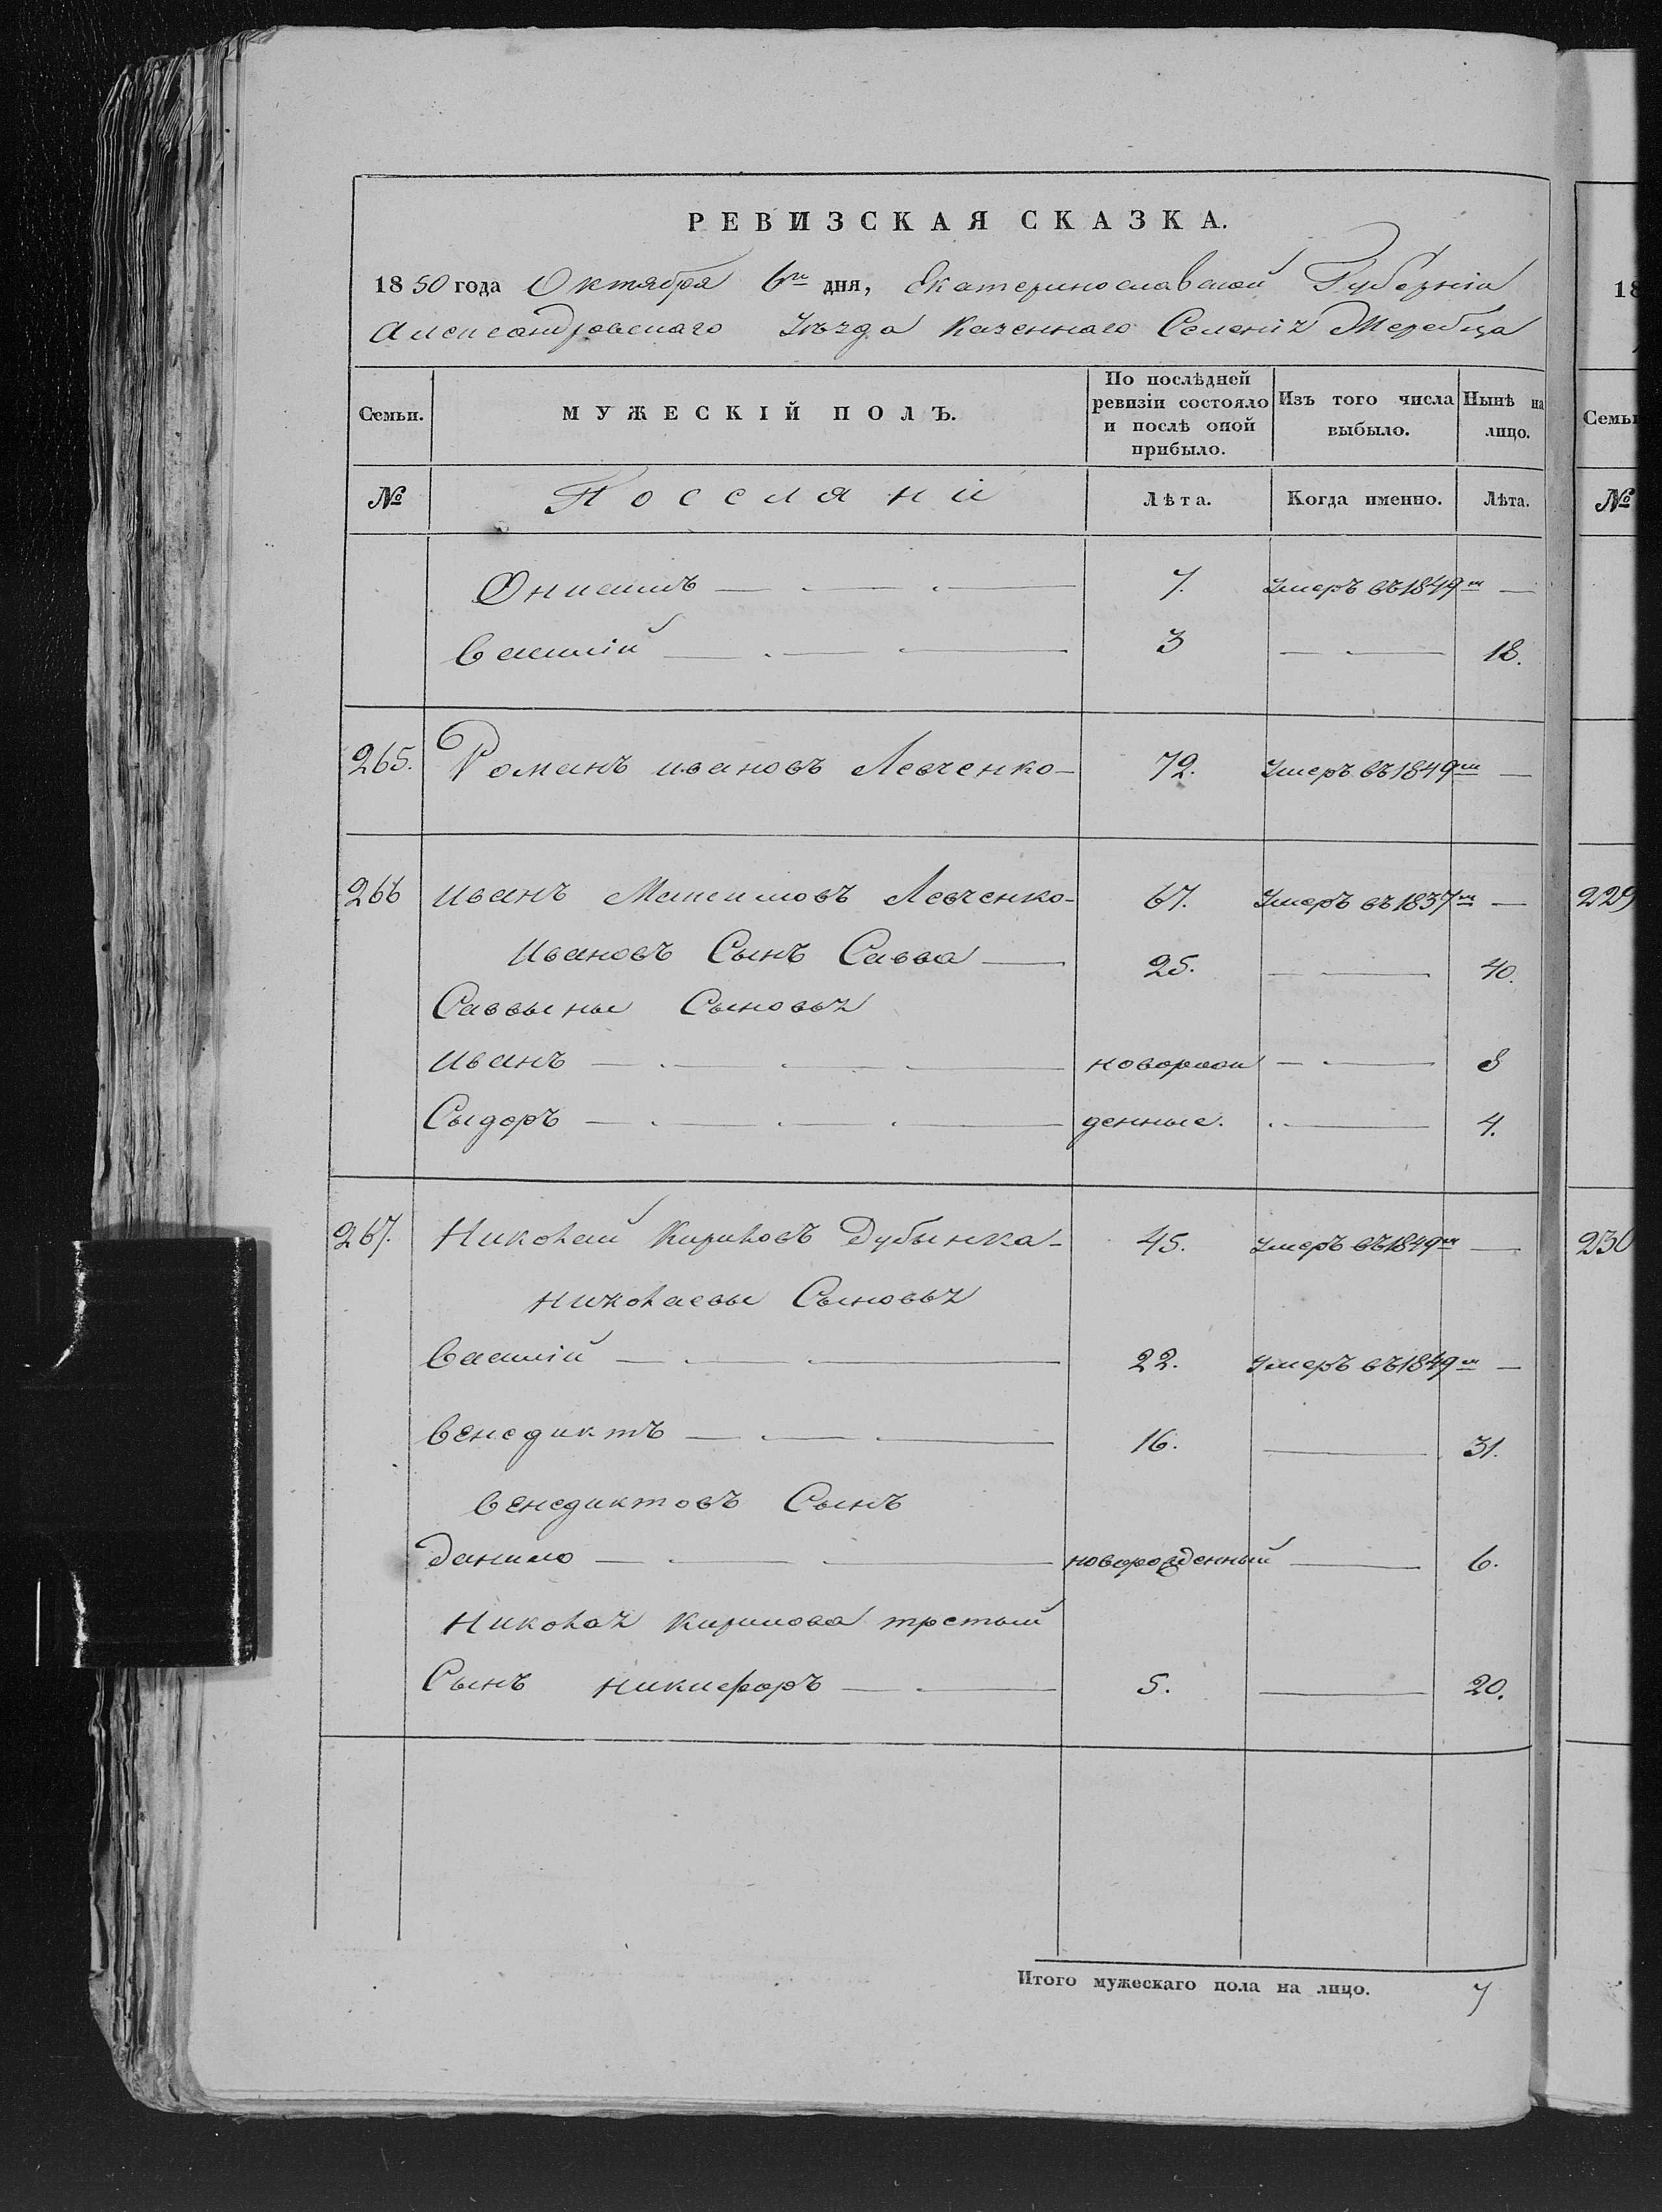 РЕВИЗСКАЯ СКАЗКА.
1850 года Октября 6го дня, Екатеринославской Губерніи
Александровскаго Уѣзда Казеннаго Селенія Жеребца
Семьи. МУЖЕСКІЙ ПОЛЪ. По послѣдней ревизіи состояло и послѣ оной прибыло. Изъ того числа выбыло. Нынѣ на лицо.
№ Поселяни Лѣта. Когда именно. Лѣта.
Онисимъ 7. Умеръ въ 1849м —
Василій 3 — 18.
265. Романъ ивановъ Левченко 72. Умеръ въ 1849м —
266 Иванъ Максимовъ Левченко 67. Умеръ въ 1837м —
Ивановъ Сынъ Савва 25. — 40.
Саввины Сыновья
Иванъ новорож — 8
Сыдоръ денные. — 4.
267. Николай Кириловъ Дубынка 45. Умеръ въ 1849м —
николаевы Сыновья
Василій 22. Умеръ въ 1849м —
Венедиктъ 16. — 31.
Венедиктовъ Сынъ
Данило новорожденный — 6.
Николая Кирилова третый
Сынъ никифоръ 5. — 20.
Итого мужескаго пола на лицо. 7
18
Семьи
№
229
230